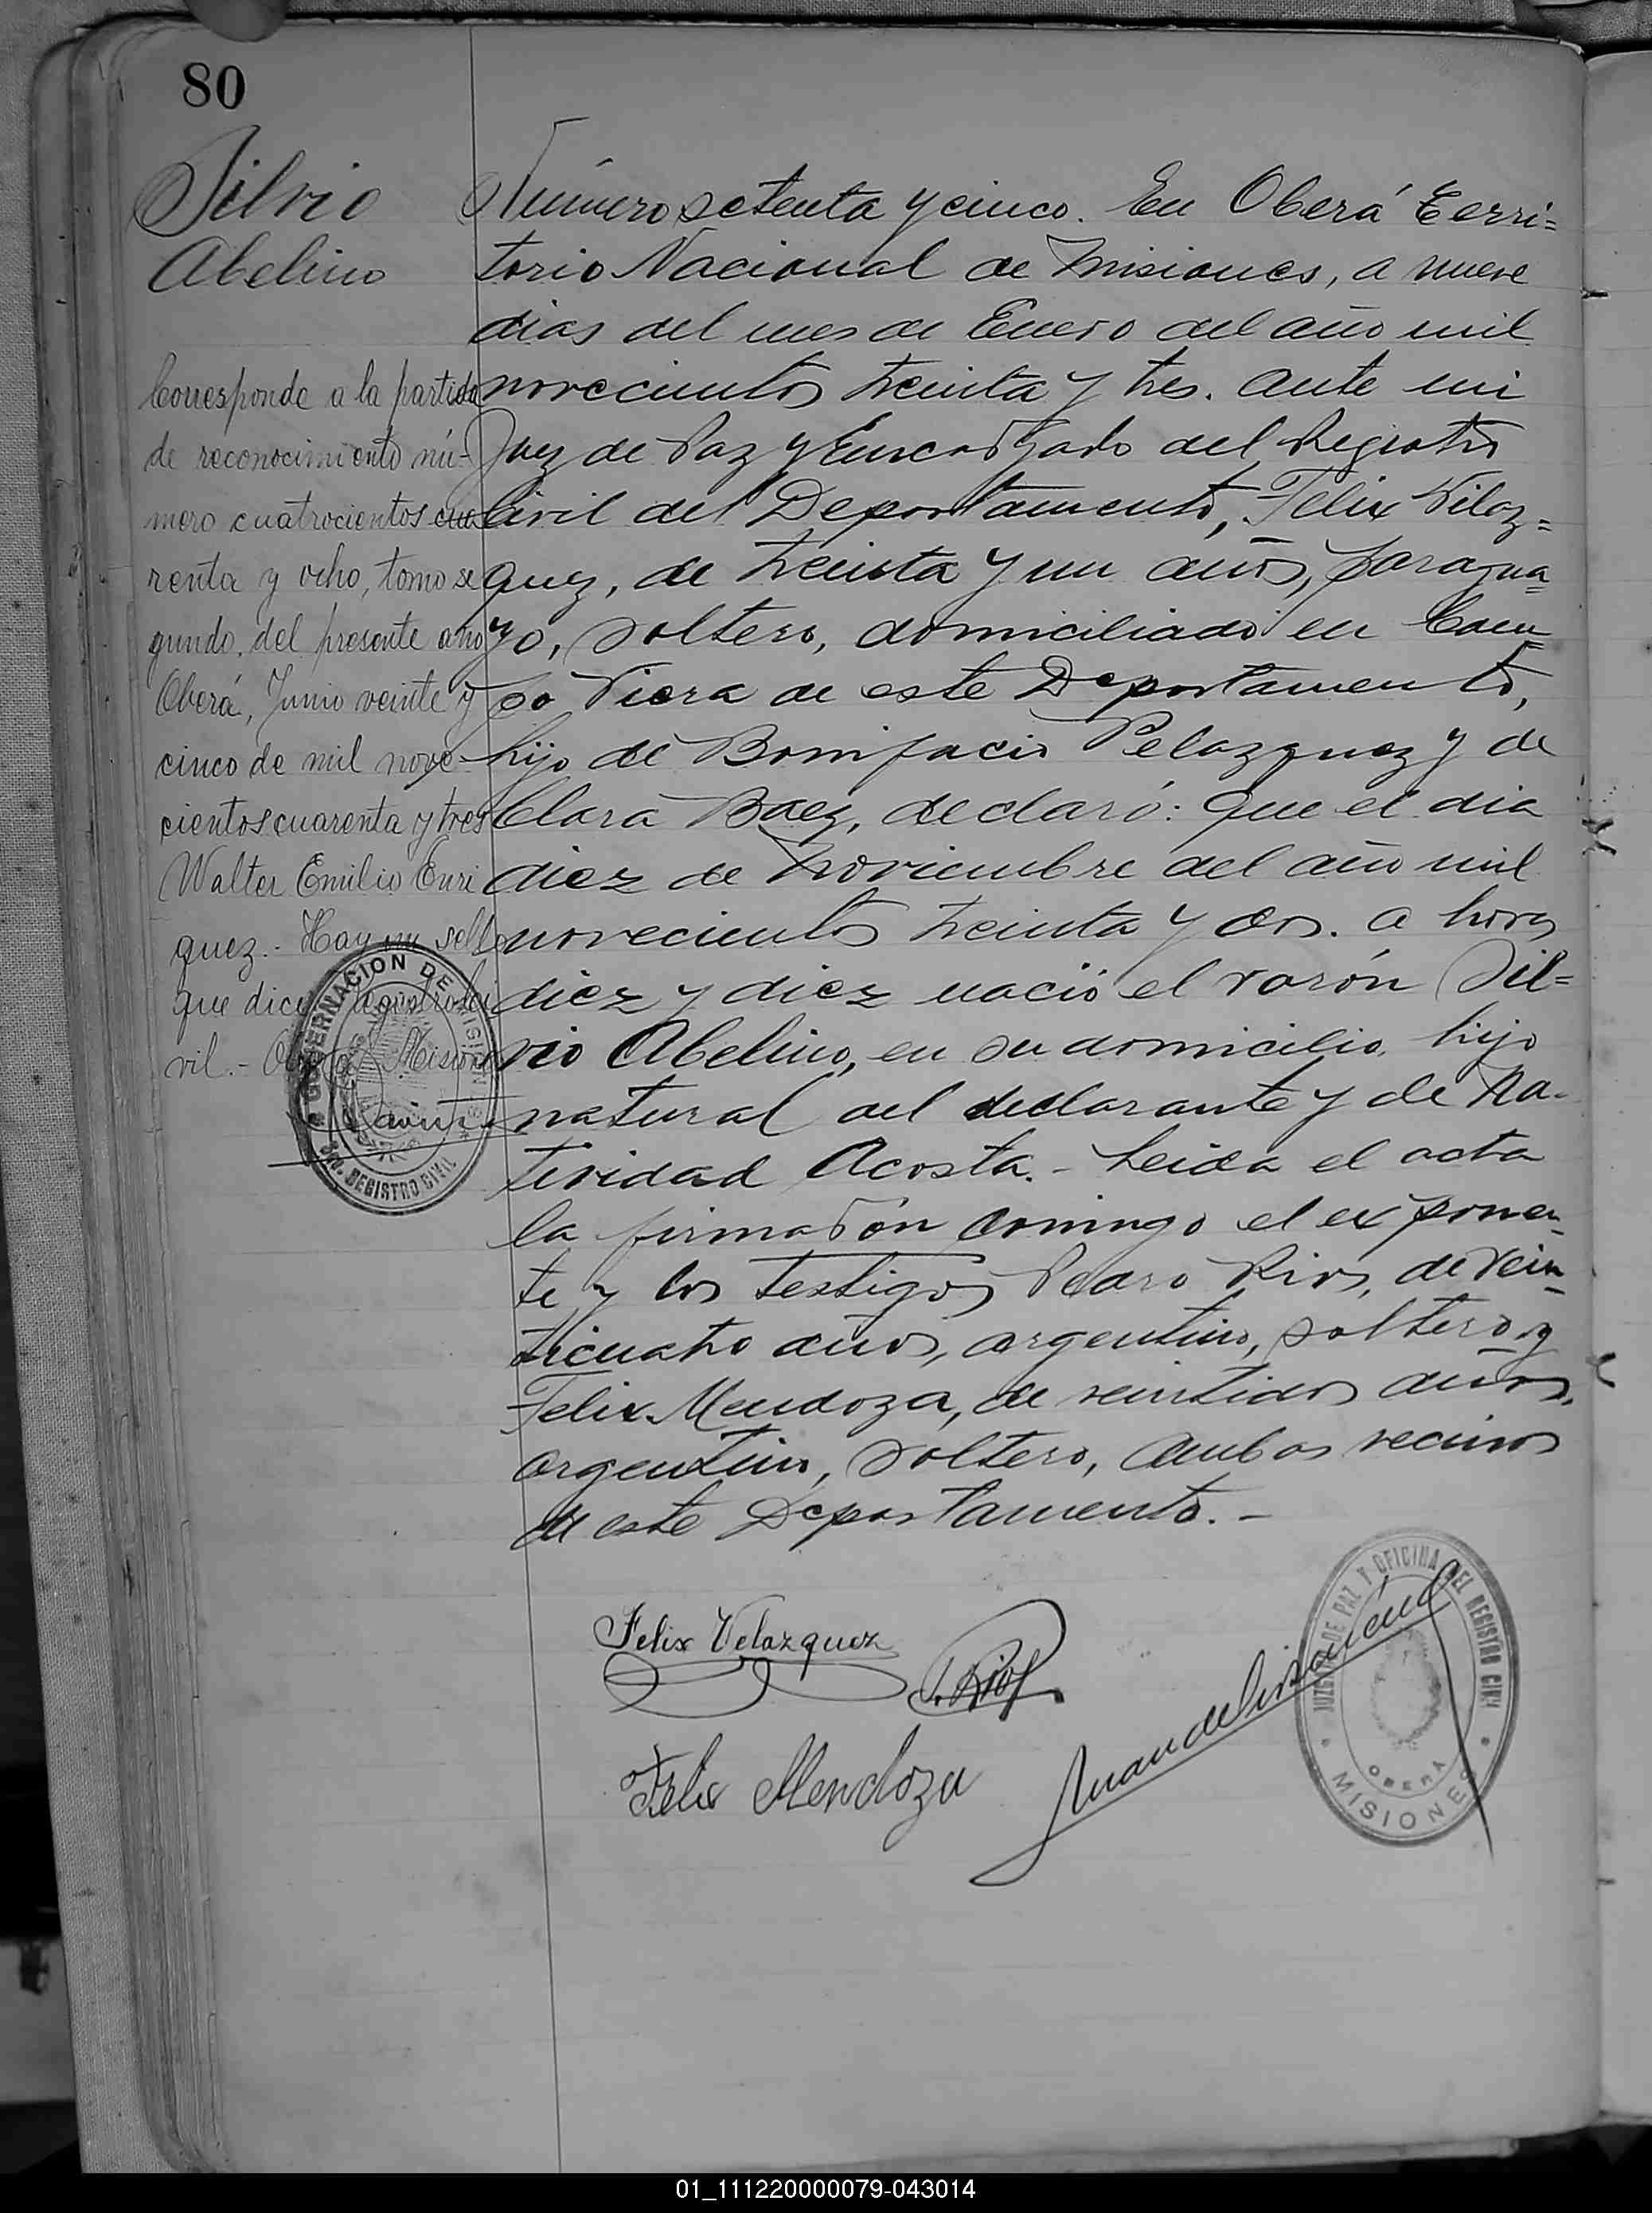 80
Silvio
Abelino
Corresponde a la partida
de reconocimiento nú-
mero cuatrocientos cua
renta y ocho, tomo se
gundo, del presente año
Oberá, Junio veinte y
cinco de mil nove-
cientos cuarenta y tres
Walter Emilio Enri
quez.- Hay un sello
que dice Registro Ci
vil.- Oberá Misiones
GOBERNACION DE MISIONES
REGISTRO CIVIL
Número setenta y cinco. En Oberá Terri=
torio Nacional de Misiones, a nueve
dias del mes de Enero del año mil
novecientos treinta y tres. Ante mi
Juez de Paz y Encargado del Registro
Civil del Departamento, Felix Vilaz=
quez, de treinta y un años, paragua=
yo, soltero, domiciliado en Cam=
po Viera de este Departamento,
hijo de Bonifacio Velazquez y de
Clara Baez, declaró: Que el dia
diez de Noviembre del año mil
novecientos treinta y dos. a horas
diez y diez nació el varón Sil=
vio Abelino, en su domicilio, hijo
natural del declarante y de Na-
tividad Acosta.- Leida el acta
la firmaron conmigo el exponen=
te y los testigos Pedro Rios, de vein=
ticuatro años, argentino, soltero, y
Felix Mendoza, de veintidos años,
argentino, soltero, ambos vecinos
de este Departamento.-
Felix Velazquez
P. Rios
Felix Mendoza
JUZGADO DE PAZ Y OFICINA DEL REGISTRO CIVIL
OBERA
MISIONES
01_111220000079-043014